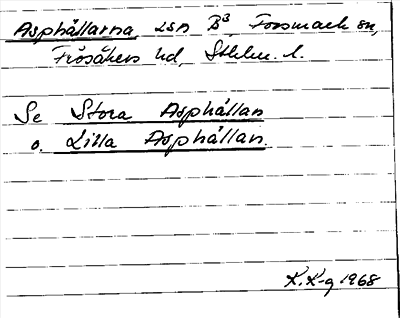 Asphällarna, LSA B³, Forsmark sn,
Frösåkers hd, Sthlm. l.
Se Stora Asphällan
o. Lilla Asphällan.
K. K-g 1968